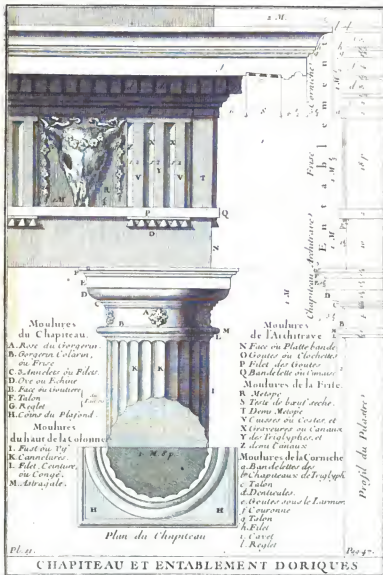 2 M.
Corniche
Frise
Architrave
Chapiteau
Entablement
Profil du Pilastre
Moulures
du Chapiteau.
A. Rose du Gorgerin.
B. Gorgerin Colarin,
ou Frise
C. 3 Annelets ou Filets.
D. Ove ou Echine
E. Face ou Goutiere
F. Talon
G. Reglet
H. Coins du Plafond.
Moulures
du haut de la Colonne
I. Fust ou Vif
K. Cannelures.
L. Filet, Ceinture,
ou Congé.
M. Astragale.
Moulures
de l'Architrave
N Face ou Plattebande
O Goutes ou Clochettes
P Filet des Goutes
Q Bandelette ou Cimaise
Moulures de la Frise.
R Metope
S Teste de bœuf seche.
T Demi Metope
V Cuisses ou Costes, et
X Graveures ou Canaux
Y des Triglyphes, et
Z demi Canaux
Moulures de la Corniche
a. Bandelettes des
b. Chapiteaux de Triglyph
c Talon
d. Denticules.
e. Goutes sous le Larmier
f Couronne
g Talon
h. Filet
i. Cavet
l. Reglet
Plan du Chapiteau
CHAPITEAU ET ENTABLEMENT DORIQUES